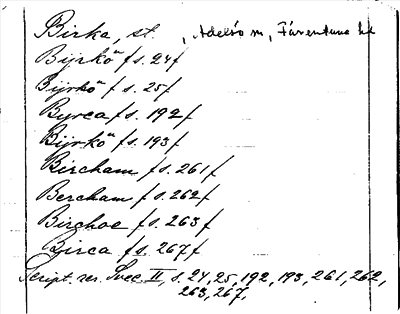 Birka, st. , Adelsö sn, Färentuna hd
Bijrkö" / s. 24 /
Bijrkö" / s. 25 /
Byrca / s. 192 /
Bijrkö" / s. 193 /
Bircham / s. 261 /
Bercham / s. 262 /
Birchoe / s. 263 /
Birca / s. 267 /
Script. rer. Svec. II, s. 24, 25, 192, 193, 261, 262,
263, 267.